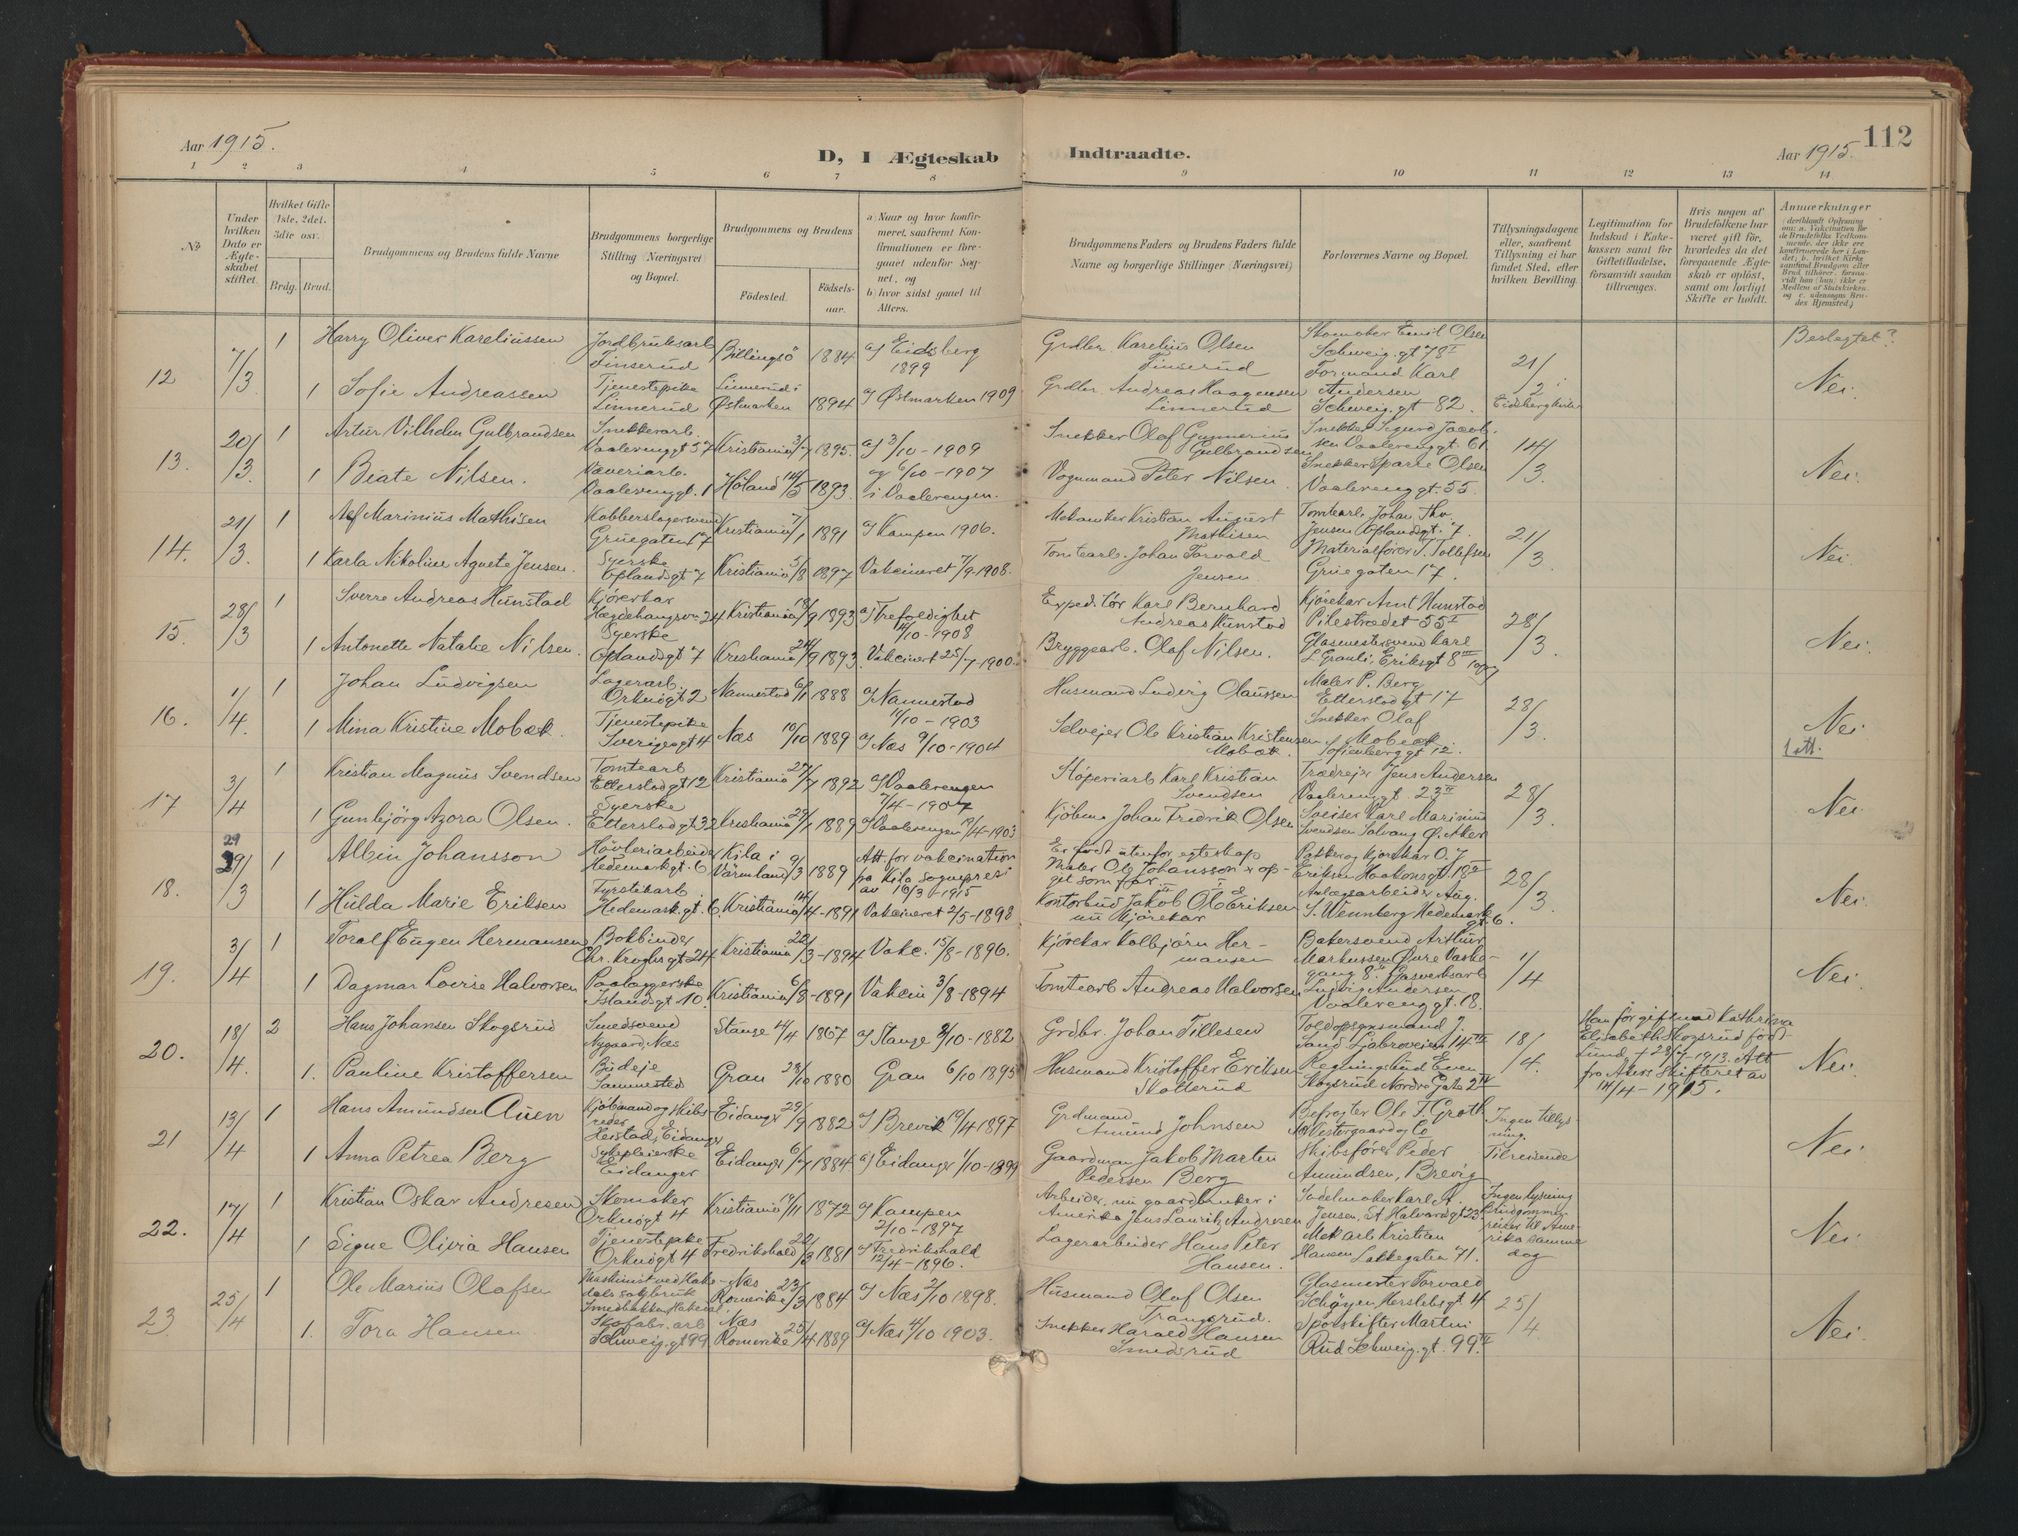 Aar 1915.
D, I Ægteskab
Indtraadte.
Aar 1915.
112
1 2 3 4 5 6 7 8 9 10 11 12 13 14
No
Under hvilken Dato er Ægteskabet stiftet.
Hvilket Gifte 1ste, 2det, 3die osv.
Brdg. Brud.
Brudgommens og Brudens fulde Navne
Brudgommens borgerlige Stilling (Næringsvei) og Bopæl.
Brudgommens og Brudens
Födested.
Födselsaar.
a) Naar og hvor konfirmeret, samt fremt Konfirmationen er foregaaet udenfor Sognet, og
b) hvor sidst gaaet til Alters.
Brudgommens Faders og Brudens Faders fulde Navne og borgerlige Stillinger (Næringsvei)
Forlovernes Navne og Bopæl.
Tillysningsdagene eller, saafremt Tillysning ei har fundet Sted, efter hvilken Bevilling.
Legitimation for Indskud i Kakekassen samt for Giftetilladelse, forsaavidt saadan tiltrænges.
Hvis nogen af Brudefolkene har været gift för, hvorledes da det foregaaende Ægteskab er oplöst, samt om lovligt Skifte er holdt.
Anmærkninger
12 7/3 1 Harry Oliver Kareliussen Jordbruksarb. Finserud Billingsö 1884 af Eidsberg 1899 Grdbr. Karelius Olsen Finserud Skomaker Emil Olsen Schweig.gt 78 I 21/2 Eidsbergkirke Beslegtet? Nei.
1 Sofie Andreassen Tjenestepike Linnerud Linnerud i Østmarken 1894 af Østmarken 1909 Grdbr Andreas Haagensen Linnerud Formand Karl Andersen Schweig.gt 82.
13. 20/3 1 Artur Vilhelm Gulbrandsen Snekkerarb. Vaalerenggt 37 Kristiania 3/7 1895. af 3/10-1909 Snekker Olaf Gunnerius Gulbrandsen Snekker Sigurd Jacobsen Vaalerenggt 61 14/3. Nei.
1 Beate Nilsen. Væveriarb. Vaalerenggt. 1 Höland 14/5 1893. og 6/10-1907 i Vaalerengen. Vognmand Peter Nilsen. Snekker Sparre Olsen Vaalerenggt. 55.
14. 21/3. 1 Alf Marinius Mathisen Kobberslagersvend Gruegaten 17 Kristiania 7/1 1891 af Kampen 1906. Mekaniker Kristian August Mathisen Tomtearb. Johan Thv. Jensen Oplandsgt. 7 21/3. Nei.
1 Karla Nikoline Agnete Jensen. Syerske Oplandsgt 7 Kristiania 5/8 1897 Vakcineret 7/9-1908. Tomtearb. Johan Torvald Jensen. Materialforer T. Tollefsen Gruegaten 17.
15. 28/3 1 Sverre Andreas Hunstad Kjörerkar Hægdehaugsvn 24 Kristiania 18/9 1893 af Trefoldighet 11/10-1908 Expeditör Karl Bernhard Andreas Hunstad Kjörekar Amt Hunstad Pilestrædet 55 I 28/3. Nei.
1 Antonette Natalie Nilsen. Syerske Oplandsgt 7 Kristiania 24/9 1893. Vakcinert 25/7-1900. Bryggearb. Olaf Nilsen. Glasmestersvend Karl L Granli, Eriksgt 8 III
16. 1/4. 1 Johan Ludvigsen Lagerarb. Orknögt 2 Nannestad 6/1 1888 af Nannestad 11/10-1903 Husmand Ludvig Olaussen Maler P. Berg Etterstadgt 17 28/3. Nei
1 Mina Kristine Mobæk. Tjenestepike Sverigesgt 4 Næs 10/10 1889 af Næs 9/10-1904 Selveier Ole Kristian Kristensen Mobæk Snekker Olaf Mobæk Sofienberggt 12. 1 att.
17 3/4 1 Kristian Magnus Svendsen Tomtearb Etterstadgt 12 Kristiania 27/7 1892 af Vaalerengen 7/4-1907 Stöperiarb Karl Kristian Svendsen Trædreier Jens Andersen Vaalerenggt. 23 II 28/3. Nei
1 Gunbjörg Azora Olsen. Syerske Etterstadgt 32 Kristiania 29/1 1889 af Vaalerengen 19/4-1903 Kjöbm. Johan Fredrik Olsen Sveiser Karl Marinius Svendsen Solvang Ø. Aker
18. 29 29/3 1 Albin Johansson Hövleriarbeider Hedemarkgt. 6 Kila i Värmland 9/3 1889 Att. for vakcination fra Kila sognepræst av 16/3-1915 Er født utenfor egteskap Maler Ole Johansson er opgit som far Pakker og Kjörekar O. J Eriksen Haakonsgt. 18 28/3. Nei.
1 Hulda Marie Eriksen Fyrstikarb. Hedemarkgt. 6. Kristiania 14/4-1891 Vakcineret 2/5-1898 Kontorbud Jakob Ole Eriksen nu Kjörekar Anlægsarbeider Aug. S. Wennberg Hedemarkgt. 6.
19. 3/4 1 Toralf Eugen Hermansen Bokbinder Chr. Kroghsgt 24 Kristiania 22/3-1894 Vakc. 15/8-1896. Kjörekar Kolbjörn Hermansen Bakersvend Arthur Markussen Øvre Vaskegang 8. 1/4 Nei.
1 Dagmar Lovise Halvorsen Paalæggerske Islandsgt 10. Kristiania 6/8-1891 Vakcin 3/8-1894 Tomtearb Andreas Halvorsen Gasverksarb Ludvig Andersen Vaalerenggt. 18.
20. 18/4. 2 Hans Johansen Skogsrud Smedsvend Nygaard, Næs Stange 4/4 1867 af Stange 8/10-1882 Grdbr. Johan Tillesen Toldopsynsmand J. Sand Ljabroveien 14 III 18/4. Han før gift med Kathrina Elisabeth Skogsrud född Lund + 28/7-1913. Att fra Akers Skifteret av 14/4-1915. Nei.
1. Pauline Kristoffersen Budeie Sammested Gran 28/10 1880 Gran 6/10 1895 Husmand Kristoffer Eriksen Skollerud Regningsbud Even Skogsrud Nordre Gate 2 IV
21 13/4 1 Hans Amundsen Auen Kjöbmand og skibsreder Heistad, Eidanger Eidanger 29/9 1882 af Brevik 19/4 1897 Grdmand Amund Johnsen Befragter Ole T. Groth Vestergaard og Co Ingen tillysning. Tilreisende Nei.
1 Anna Petrea Berg Sykepleierske Eidanger Eidanger 6/7 1884 af Eidanger 1/10-1899 Gaardman Jakob Martin Pedersen Berg Skibsförer Peder Amundsen, Brevig
22. 17/4 1 Kristian Oskar Andresen Skomaker Orknögt 4 Kristiania 19/11 1872 af Kampen 2/10-1897 Arbeider, nu gaardbruker i Amerika Jens Lauritz Andresen Sadelmaker Karl A. Jensen, St Halvardsgt 23 Ingen lysning Brudgommen reiser til Amerika samme dag Nei.
1 Signe Olivia Hansen Tjenestepike Orknögt 4 Fredrikshald 22/3 1881 af Fredrikshald 12/4-1896. Lagerarbeider Hans Peter Hansen. Mek arb Kristian Hansen Lakkegaten 71.
23 25/4 1 Ole Marius Olafsen Maskinist ved Hakedals Smedbakken Hakedal Næs Romerike 23/3 1884 af Næs 2/10 1898. Husmand Olaf Olsen Trangsrud. Glasmester Torvald Schöyen Herslebsgt 4 25/4 Nei.
1. Tora Hansen Skofabr. arb Schweig.gt 99 Næs Romerike 25/4 1889 af Næs 4/10 1903. Snekker Harald Hansen Smedsrud Sporskifter Martin Rud Schweig.gt. 99 IV